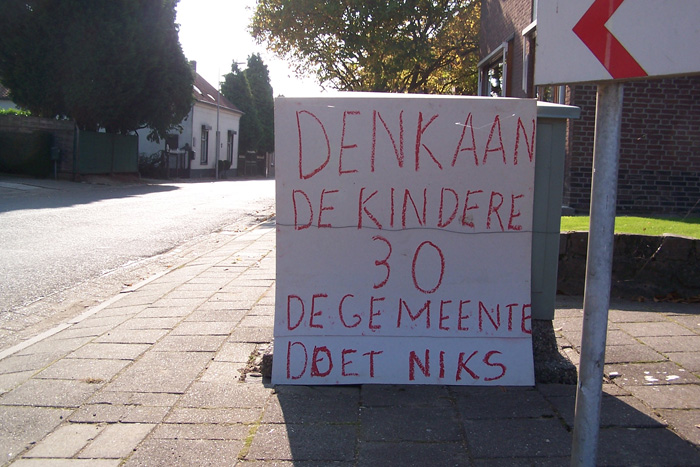 DENKAAN
DE KINDERE
30
DEGEMEENTE
DOET NIKS